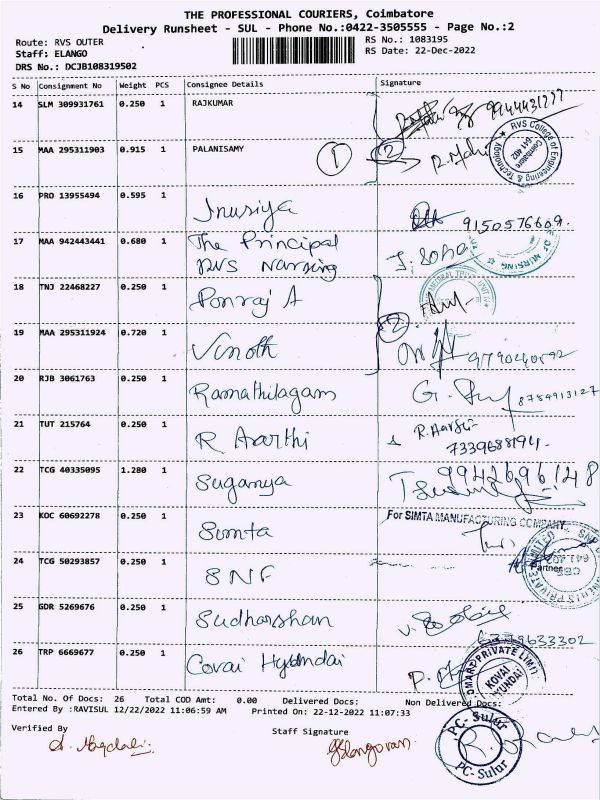 THE PROFESSIONAL COURIERS, Coimbatore
Delivery Runsheet - SUL - Phone No.:0422-3505555 - Page No.:2
Route: RVS OUTER
RS No.: 1083195
Staff: ELANGO
RS Date: 22-Dec-2022
DRS No.: DCJB108319502
S No Consignment No Weight PCS Consignee Details Signature
14 SLM 309931761 0.250 1 RAJKUMAR
15 MAA 295311903 0.915 1 PALANISAMY 1 2
RVS College of Engineering & Technology
Coimbatore
641 402
16 PRO 13955494 0.595 1 Inusiya 9150576609.
17 MAA 942443441 0.680 1 The Principal
RVS Narsing
OF NURSING
18 TNJ 22468227 0.250 1 Ponraj A
19 MAA 295311924 0.720 1 Vinoth 2
20 RJB 3061763 0.250 1 Ramathilagam 8754913127
21 TUT 215764 0.250 1 R Aarthi
7339688194.
22 TCG 40335095 1.280 1 Suganya 9942696148
23 KOC 60692278 0.250 1 Simta
For SIMTA MANUFACTURING COMPANY
Partner
24 TCG 50293857 0.250 1 SNF
25 GDR 5269676 0.250 1 Sudharshan
26 TRP 6669677 0.250 1 Covai Hyundai
PRIVATE LIMIT
KOVAI
HYUNDAI
Total No. Of Docs: 26 Total COD Amt: 0.00 Delivered Docs: Non Delivered Docs:
Entered By :RAVISUL 12/22/2022 11:06:59 AM Printed On: 22-12-2022 11:07:33
Verified By
Staff Signature
PC-Sulur
PC-Sulur